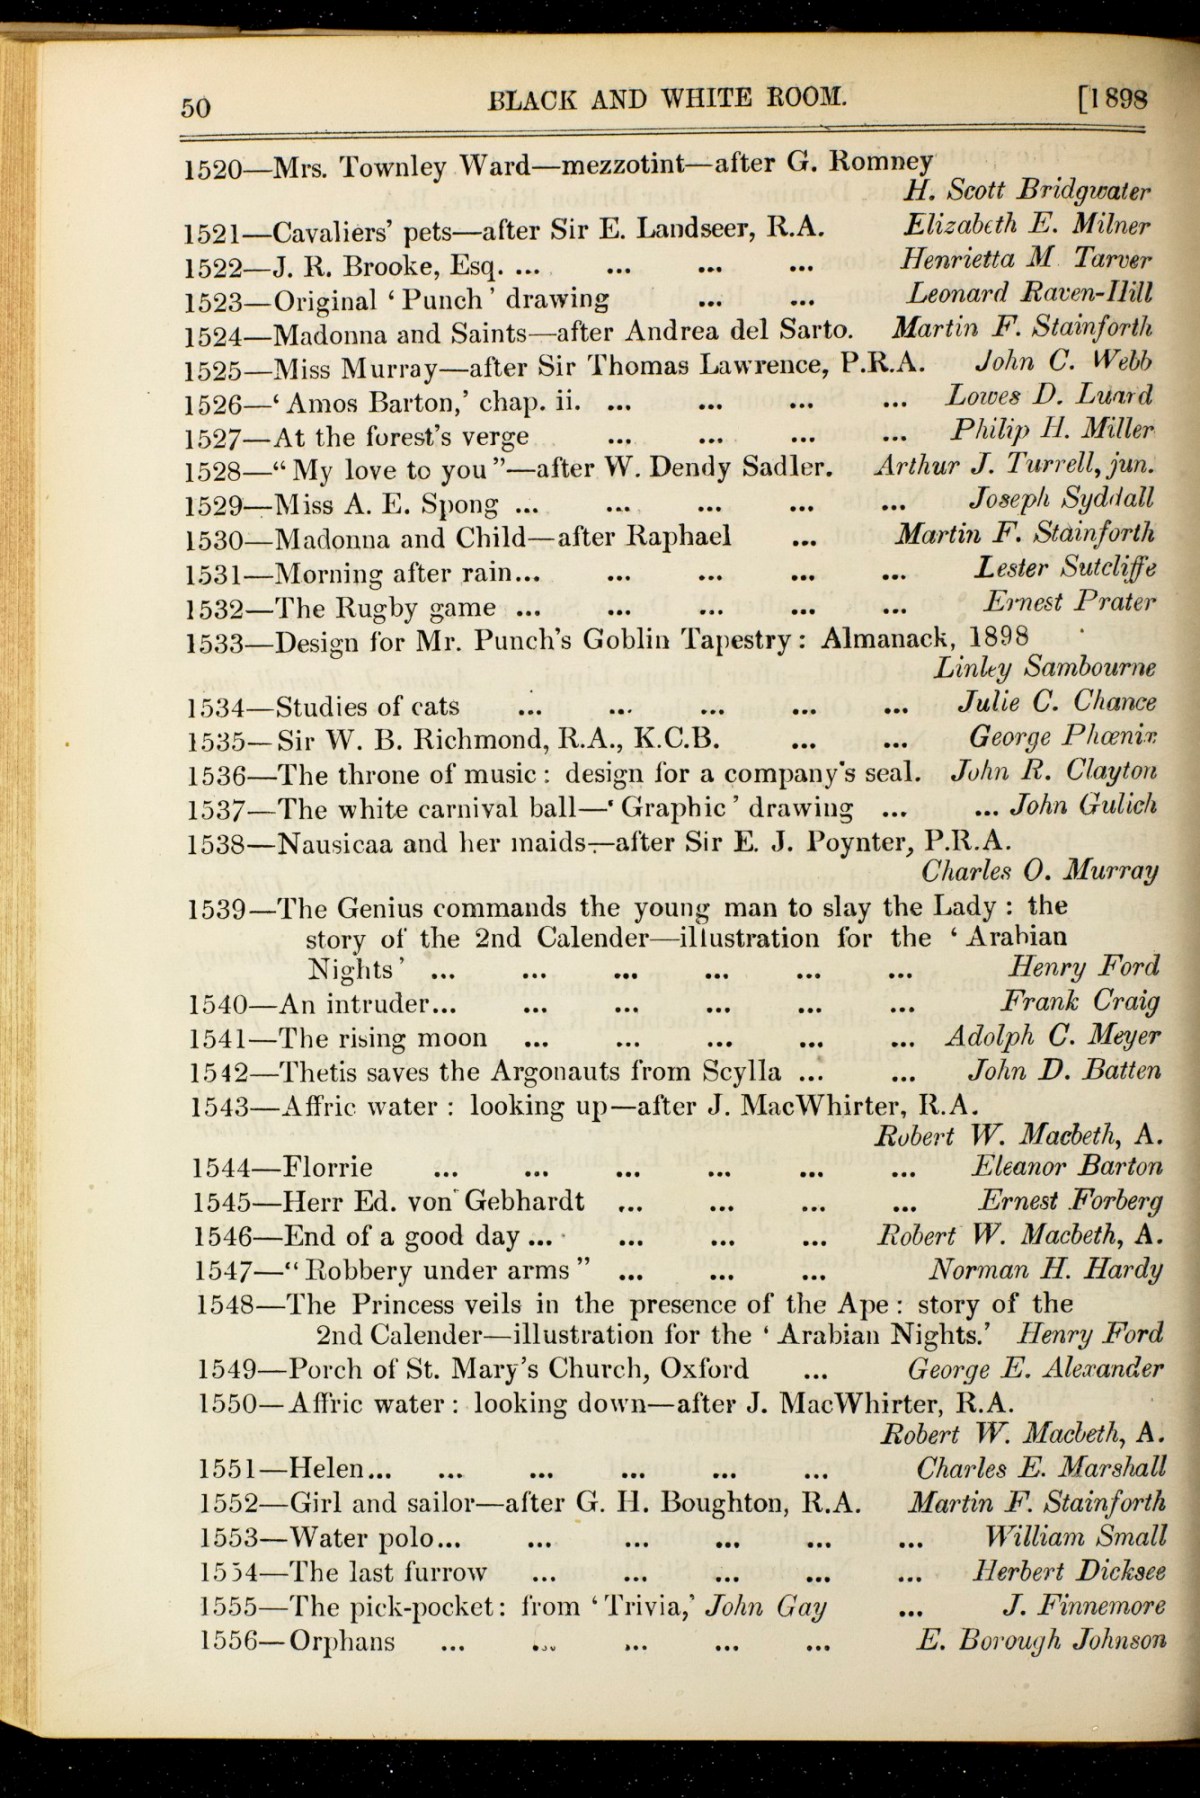 50 BLACK AND WHITE ROOM. [1898
1520—Mrs. Townley Ward—mezzotint—after G. Romney
H. Scott Bridgwater
1521—Cavaliers' pets—after Sir E. Landseer, R.A. Elizabeth E. Milner
1522—J. R. Brooke, Esq. ... ... ... ... Henrietta M Tarver
1523—Original ‘Punch’ drawing ... ... Leonard Raven-Hill
1524—Madonna and Saints—after Andrea del Sarto. Martin F. Stainforth
1525—Miss Murray—after Sir Thomas Lawrence, P.R.A. John C. Webb
1526—‘Amos Barton,’ chap. ii. ... ... ... ... Lowes D. Luard
1527—At the forest's verge ... ... ... ... Philip H. Miller
1528—“My love to you”—after W. Dendy Sadler. Arthur J. Turrell, jun.
1529—Miss A. E. Spong ... ... ... ... ... Joseph Syddall
1530—Madonna and Child—after Raphael ... Martin F. Stainforth
1531—Morning after rain... ... ... ... ... Lester Sutcliffe
1532—The Rugby game ... ... ... ... ... Ernest Prater
1533—Design for Mr. Punch's Goblin Tapestry: Almanack, 1898
Linley Sambourne
1534—Studies of cats ... ... ... ... ... Julie C. Chance
1535—Sir W. B. Richmond, R.A., K.C.B. ... ... George Phœnix
1536—The throne of music: design for a company's seal. John R. Clayton
1537—The white carnival ball—‘Graphic’ drawing ... ... John Gulich
1538—Nausicaa and her maids—after Sir E. J. Poynter, P.R.A.
Charles O. Murray
1539—The Genius commands the young man to slay the Lady: the
story of the 2nd Calender—illustration for the ‘Arabian
Nights’ ... ... ... ... ... ... Henry Ford
1540—An intruder... ... ... ... ... ... Frank Craig
1541—The rising moon ... ... ... ... ... Adolph C. Meyer
1542—Thetis saves the Argonauts from Scylla ... ... John D. Batten
1543—Affric water: looking up—after J. MacWhirter, R.A.
Robert W. Macbeth, A.
1544—Florrie ... ... ... ... ... ... Eleanor Barton
1545—Herr Ed. von Gebhardt ... ... ... ... Ernest Forberg
1546—End of a good day ... ... ... ... Robert W. Macbeth, A.
1547—“Robbery under arms” ... ... ... Norman H. Hardy
1548—The Princess veils in the presence of the Ape: story of the
2nd Calender—illustration for the ‘Arabian Nights.’ Henry Ford
1549—Porch of St. Mary's Church, Oxford ... George E. Alexander
1550—Affric water: looking down—after J. MacWhirter, R.A.
Robert W. Macbeth, A.
1551—Helen... ... ... ... ... ... Charles E. Marshall
1552—Girl and sailor—after G. H. Boughton, R.A. Martin F. Stainforth
1553—Water polo... ... ... ... ... ... William Small
1554—The last furrow ... ... ... ... ... Herbert Dicksee
1555—The pick-pocket: from ‘Trivia,’ John Gay ... J. Finnemore
1556—Orphans ... ... ... ... ... E. Borough Johnson